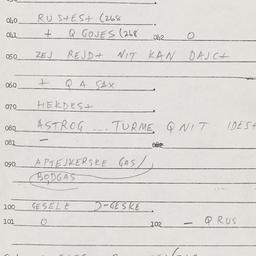 060 RUS+ES+ (268
061 + Q GOJES (268 062 0
050 ZEJ REJD+ NIT KAN DAJC+
060 + Q A SAX
070 HEKDES+
080 ASTROG ... TURME, Q NIT IDES+
081 –
090 APTEJKERSKE GAS/
BODGAS
100 GESELE D-GESKE
101 0 102 – Q RUS